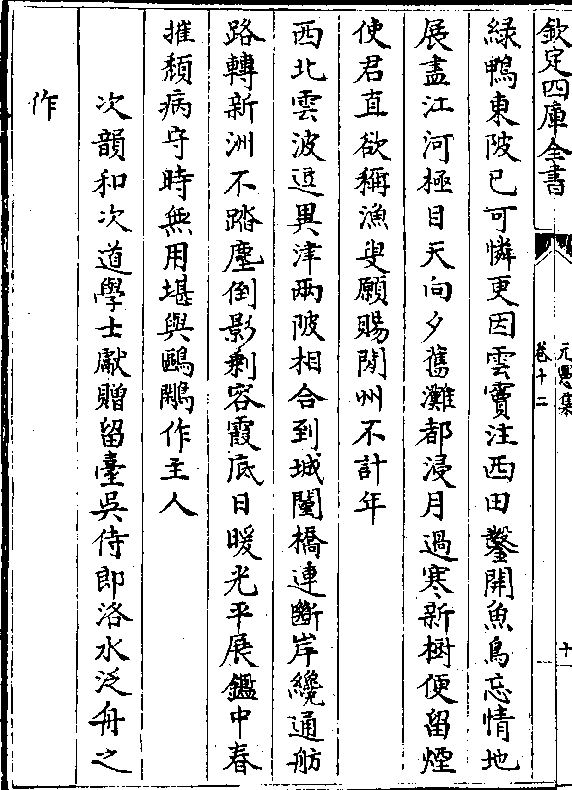 欽定四庫全書
元憲集
卷十二
十
綠鴨東陂已可憐更因雲竇注西田鑿開魚鳥忘情地
展盡江河極目天向夕舊灘都浸月過寒新樹便留煙
使君直欲稱漁叟願賜閒州不計年
西北雲波近異津兩陂相合到城闉橋連斷岸纔通舫
路轉新洲不踏塵倒影剩容霞底日暖光平展鑑中春
摧頹病守時無用堪與鷗鵰作主人
次韻和次道學士獻贈留臺吳侍郎洛水泛舟之
作